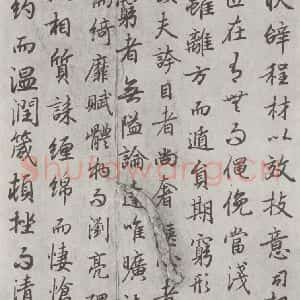 辭程材以效伎意司
匠在有無而僶俛當淺
雖離方而遁員期窮形
夫誇目者尚奢愜心者
窮者無隘論達唯曠
而綺靡賦體物而瀏亮碑
相質誄纏綿而悽愴
約而溫潤箴頓挫而清
Shufawang.cn